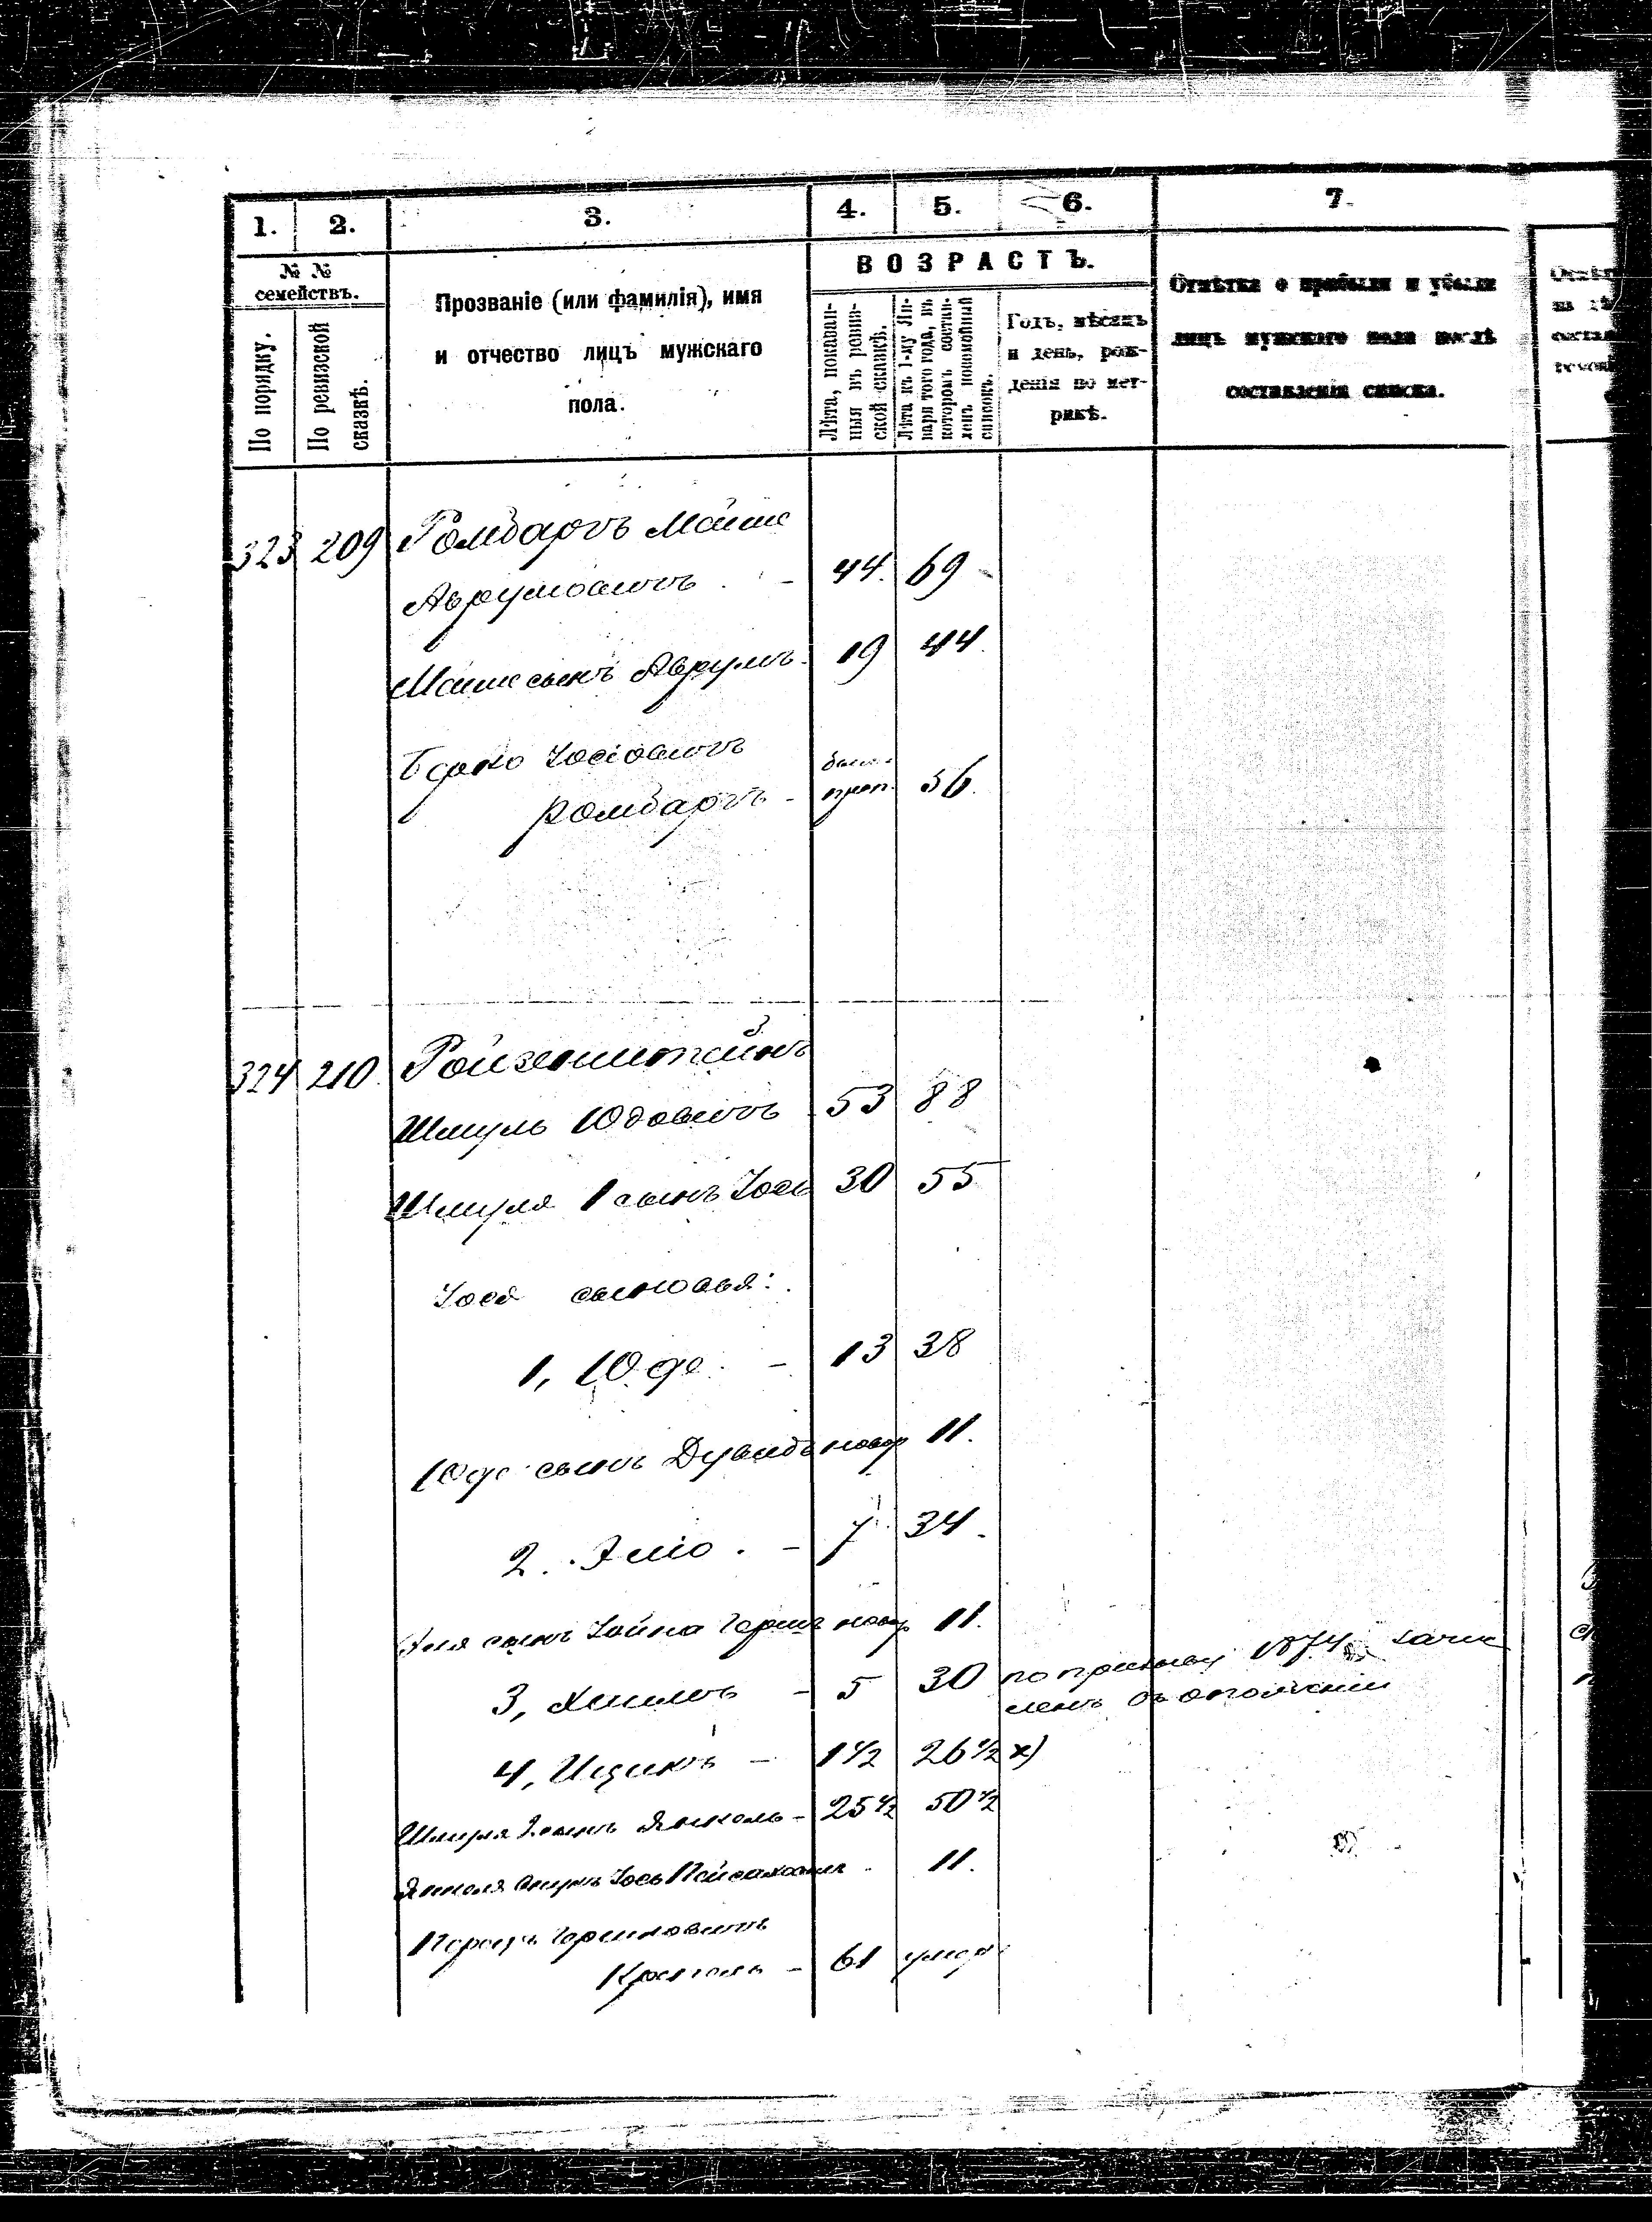 1. 2. 3. 4. 5. 6. 7.
№ № семействъ.
По порядку.
По ревизской сказкѣ.
Прозваніе (или фамилія), имя
и отчество лицъ мужскаго
пола.
ВОЗРАСТЪ.
Лѣта, показан-
ныя въ ревиз-
ской сказкѣ.
Лѣта къ 1-му Ян-
варя того года, въ
которомъ состав-
ленъ посемейный
списокъ.
Годъ, мѣсяцъ
и день, рож-
денія по мет-
рикѣ.
Отмѣтка о прибыли и убыли
лицъ мужскаго пола послѣ
составленія списка.
323 209 Ромбартъ Мошко
Аврумовичъ - 44. 69
Мошки сынъ Аврумъ. 19 44.
Берко Іосіовичъ
Ромбартъ - 56.
324 210 Ройзенштейнъ
Шмуль Юдовичъ 53 88
Шмуля 1 сынъ Іось 30 55
Іося сыновья:
1, Юдо - 13 38
Юдо сынъ Дувидъ новор 11.
2. Эліо. - 7 34.
Эля сынъ Хойна Гершъ новор 11.
3, Хаимъ - 5 30 по призыву 1874 зачис
ленъ въ ополченіи
4, Ицикъ - 1 1/2 26 1/2 х)
Шмуля 2 сынъ Янкель - 25 1/2 50 1/2
Янкеля Іось Пейсаховичъ 11.
Перецъ Гершковичъ
- 61 умер